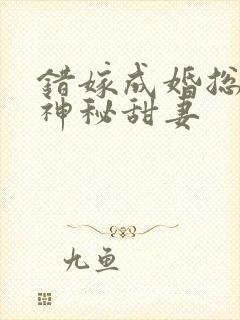 錯嫁成婚总
神秘甜妻
九鱼